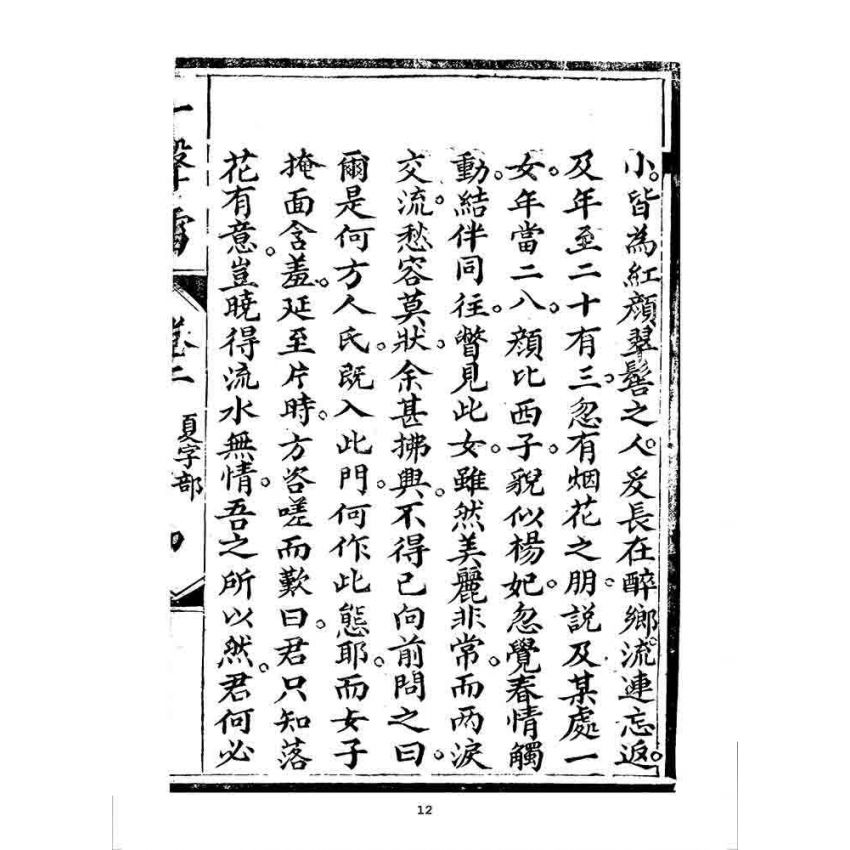 小。皆為紅顔翠鬢之人。爰長在醉鄉。流連忘返。
及年至二十有三。忽有烟花之朋。説及某處一
女。年當二八。顔比西子。貌似楊妃。忽覺春情觸
動。結伴同往。瞥見此女。雖然美麗非常。而兩淚
交流。愁容莫狀。余甚拂興。不得已向前問之曰。
爾是何方人氏。既入此門。何作此態耶。而女子
掩面含羞。延至片時。方咨嗟而歎曰。君只知落
花有意。豈曉得流水無情。吾之所以然。君何必
一聲雷
卷二
夏字部
12